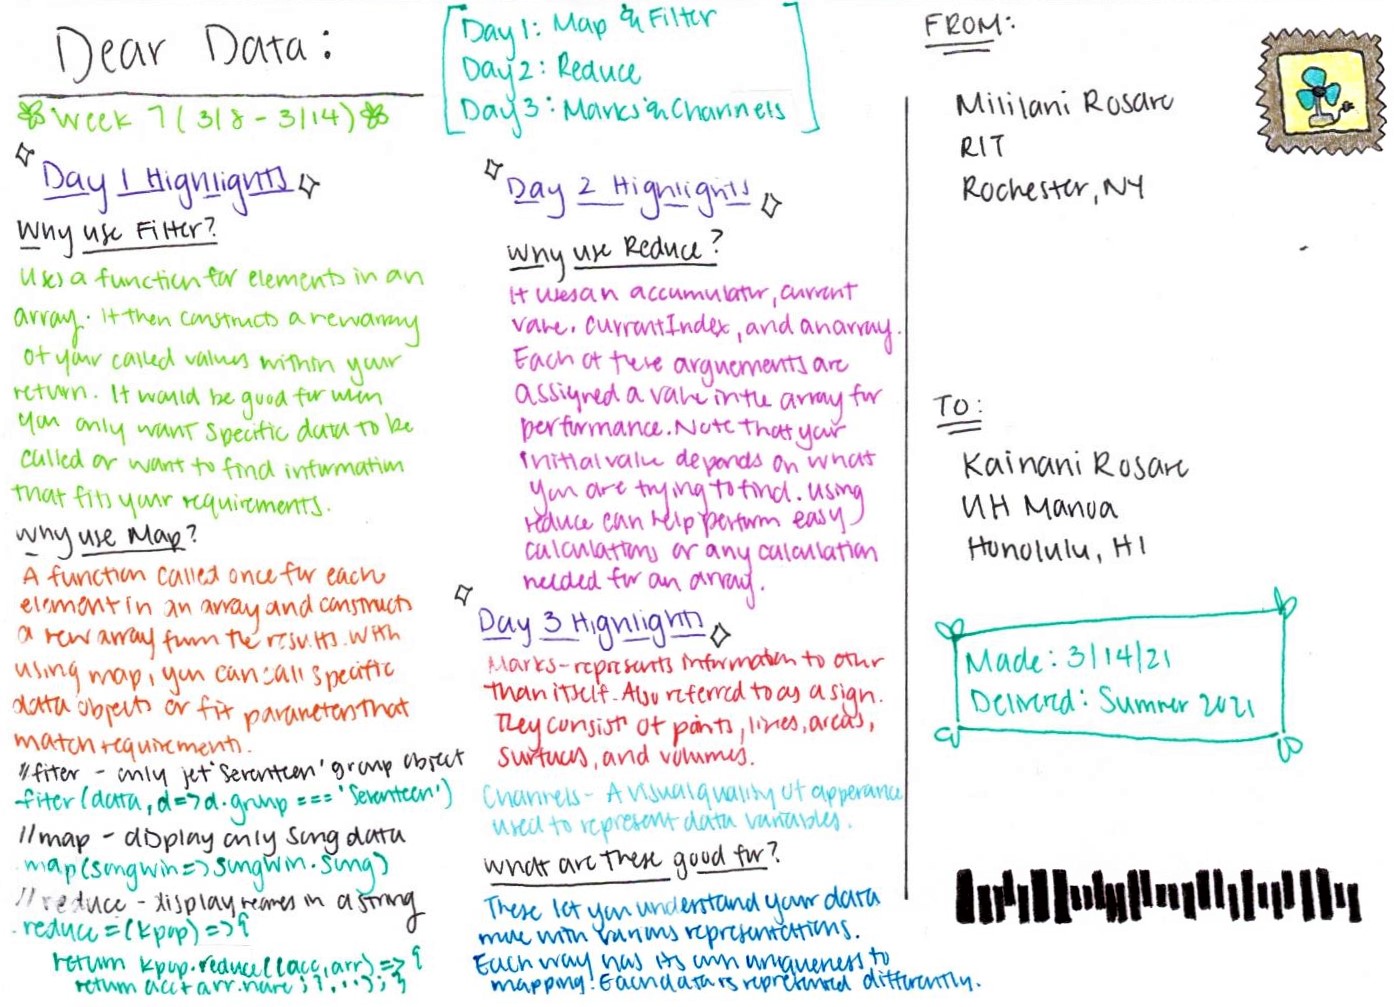 Dear Data:
Week 7 (3/8 - 3/14)
Day 1: Map & Filter
Day 2: Reduce
Day 3: Marks & Channels
Day 1 Highlights
Why use Filter?
Uses a function for elements in an
array. It then constructs a new array
of your called values within your
return. It would be good for when
you only want specific data to be
called or want to find information
that fits your requirements.
Why use Map?
A function called once for each
element in an array and constructs
a new array from the results. With
using map, you can call specific
data objects or fit parameters that
match requirements.
//filter - only jet 'Seventeen' group object
filter(data, d=>d.group === 'Seventeen')
//map - display only song data
map(songWin=>songWin.song)
//reduce - display names in a string
reduce = (kpop) => {
return kpop.reduce((acc, arr) => {
return acc + arr.name;
Day 2 Highlights
Why use Reduce?
It uses an accumulator, current
value, currentIndex, and an array.
Each of these arguements are
assigned a value in the array for
performance. Note that your
initial value depends on what
you are trying to find. Using
reduce can help perform easy
calculations or any calculation
needed for an array.
Day 3 Highlights
Marks - represents information to other
than itself. Also referred to as a sign.
They consist of points, lines, areas,
surfaces, and volumes.
Channels - A visual quality of apperance
used to represent data variables.
What are these good for?
These let you understand your data
more with various representations.
Each way has its own uniqueness to
mapping! Each data is represented differently.
FROM:
Mililani Rosare
RIT
Rochester, NY
TO:
Kainani Rosare
UH Manoa
Honolulu, HI
Made: 3/14/21
Delivered: Summer 2021